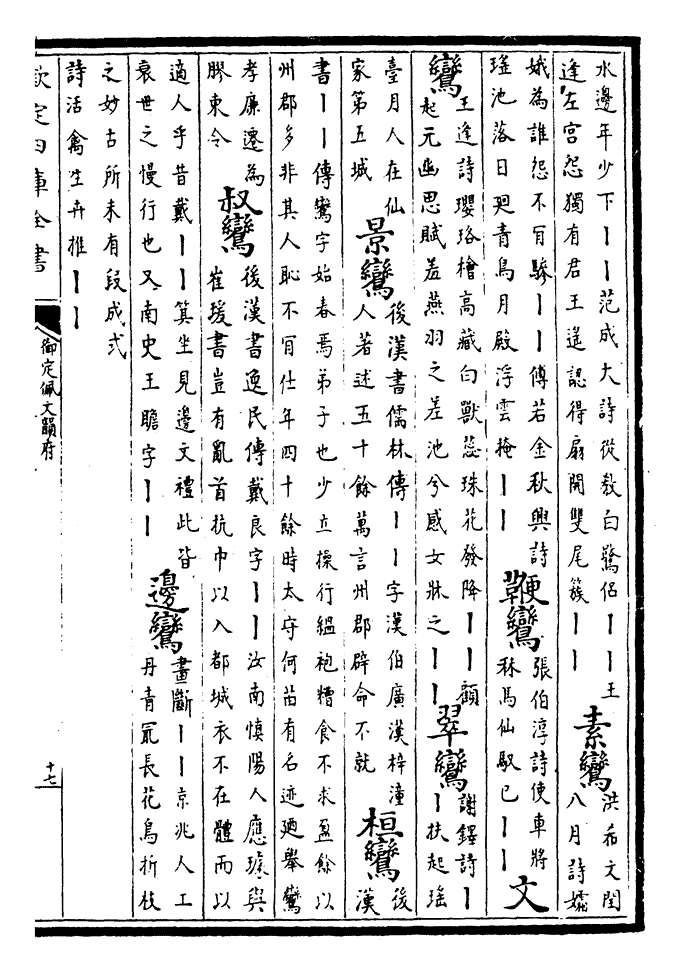 水邊年少下丨丨范成大詩從教白鷺侣丨丨王
逢左宫怨獨有君王遙認得扇開雙尾簇丨丨
素鸞
洪希文閏
八月詩孀
娥為誰怨不肎驂丨丨傅若金秋興詩
瑤池落日廻青鳥月殿浮雲掩丨丨
鞭鸞
張伯淳詩使車將
秣馬仙馭已丨丨
文
鸞
王逢詩瓔珞檜高藏白獸蕊珠花發降丨丨顧
起元幽思賦羞燕羽之差池兮感女牀之丨丨
翠鸞
謝鐸詩丨
丨扶起瑤
臺月人在仙
家第五城
景鸞
後漢書儒林傳丨丨字漢伯廣漢梓潼
人著述五十餘萬言州郡辟命不就
桓鸞
後
漢
書丨丨傳鸞字始春焉弟子也少立操行緼袍糟食不求盈餘以
州郡多非其人恥不肎仕年四十餘時太守何苗有名迹廼舉鸞
孝廉遷為
膠東令
叔鸞
後漢書逸民傳戴良字丨丨汝南慎陽人應璩與
崔瑗書豈有亂首抗巾以入都城衣不在體而以
適人乎昔戴丨丨箕坐見邊文禮此皆
衰世之慢行也又南史王瞻字丨丨
邊鸞
畫斷丨丨京兆人工
丹青冣長花鳥折枝
之妙古所未有段成式
詩活禽生卉推丨丨
欽定四庫全書
御定佩文韻府
十七